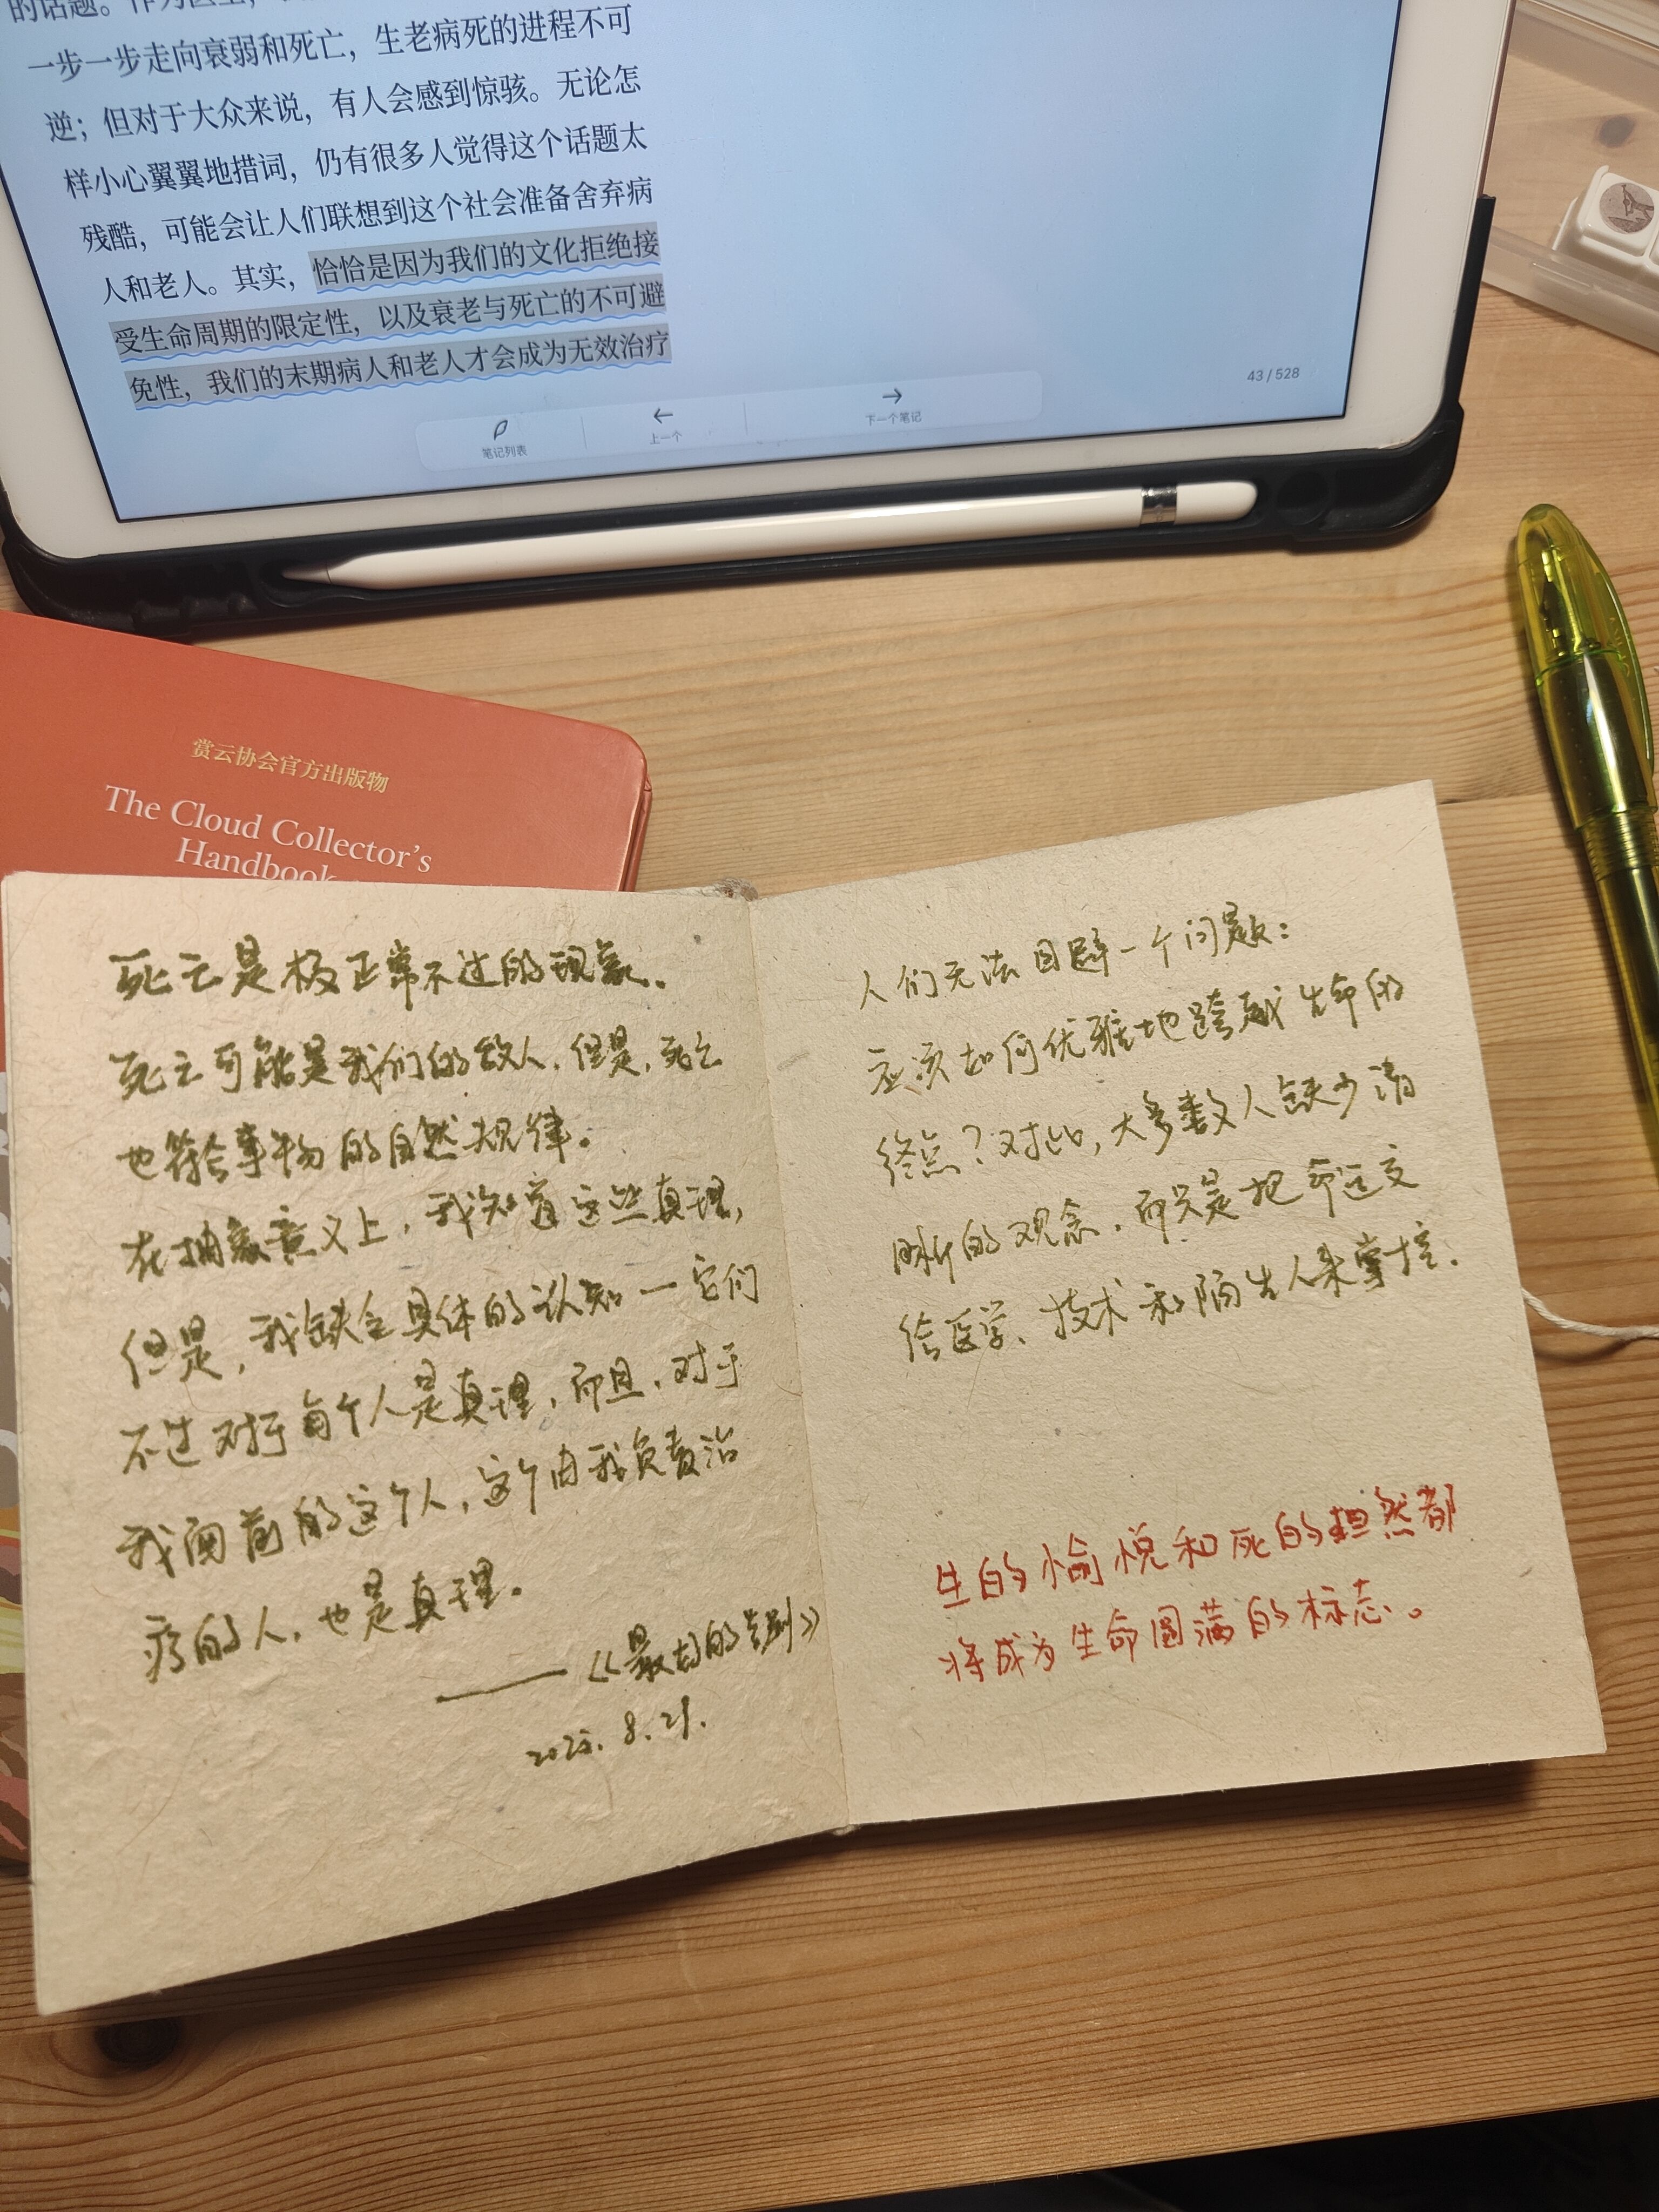 的话题。作为医生，
一步一步走向衰弱和死亡，生老病死的进程不可
逆；但对于大众来说，有人会感到惊骇。无论怎
样小心翼翼地措词，仍有很多人觉得这个话题太
残酷，可能会让人们联想到这个社会准备舍弃病
人和老人。其实，恰恰是因为我们的文化拒绝接
受生命周期的限定性，以及衰老与死亡的不可避
免性，我们的末期病人和老人才会成为无效治疗
43 / 528
笔记列表
上一个
下一个笔记
赏云协会官方出版物
The Cloud Collector's
Handbook
死亡是极正常不过的现象。
死亡可能是我们的敌人，但是，死亡
也符合事物的自然规律。
在抽象意义上，我知道这些真理，
但是，我缺乏具体的认知—它们
不过对于每个人是真理，而且，对于
我面前的这个人，这个由我负责治
疗的人，也是真理。
——《最好的告别》
2025. 8. 21.
人们无法回避一个问题：
应该如何优雅地跨越生命的
终点？对此，大多数人缺少清
晰的观念，而只是把命运交
给医学、技术和陌生人来掌控.
生的愉悦和死的坦然都
将成为生命圆满的标志。